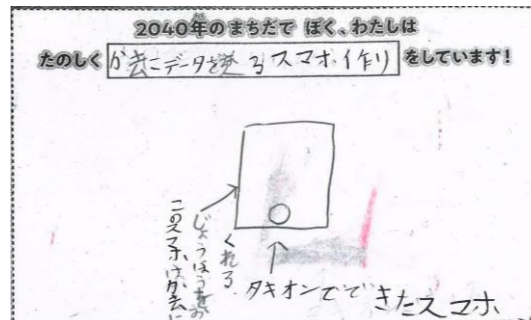 2040年のまちだで ぼく、わたしは
たのしく か去にデータを送るスマホ作り をしています!
このスマホはか去に
じょうほうをお
くれる
タキオンでできたスマホ